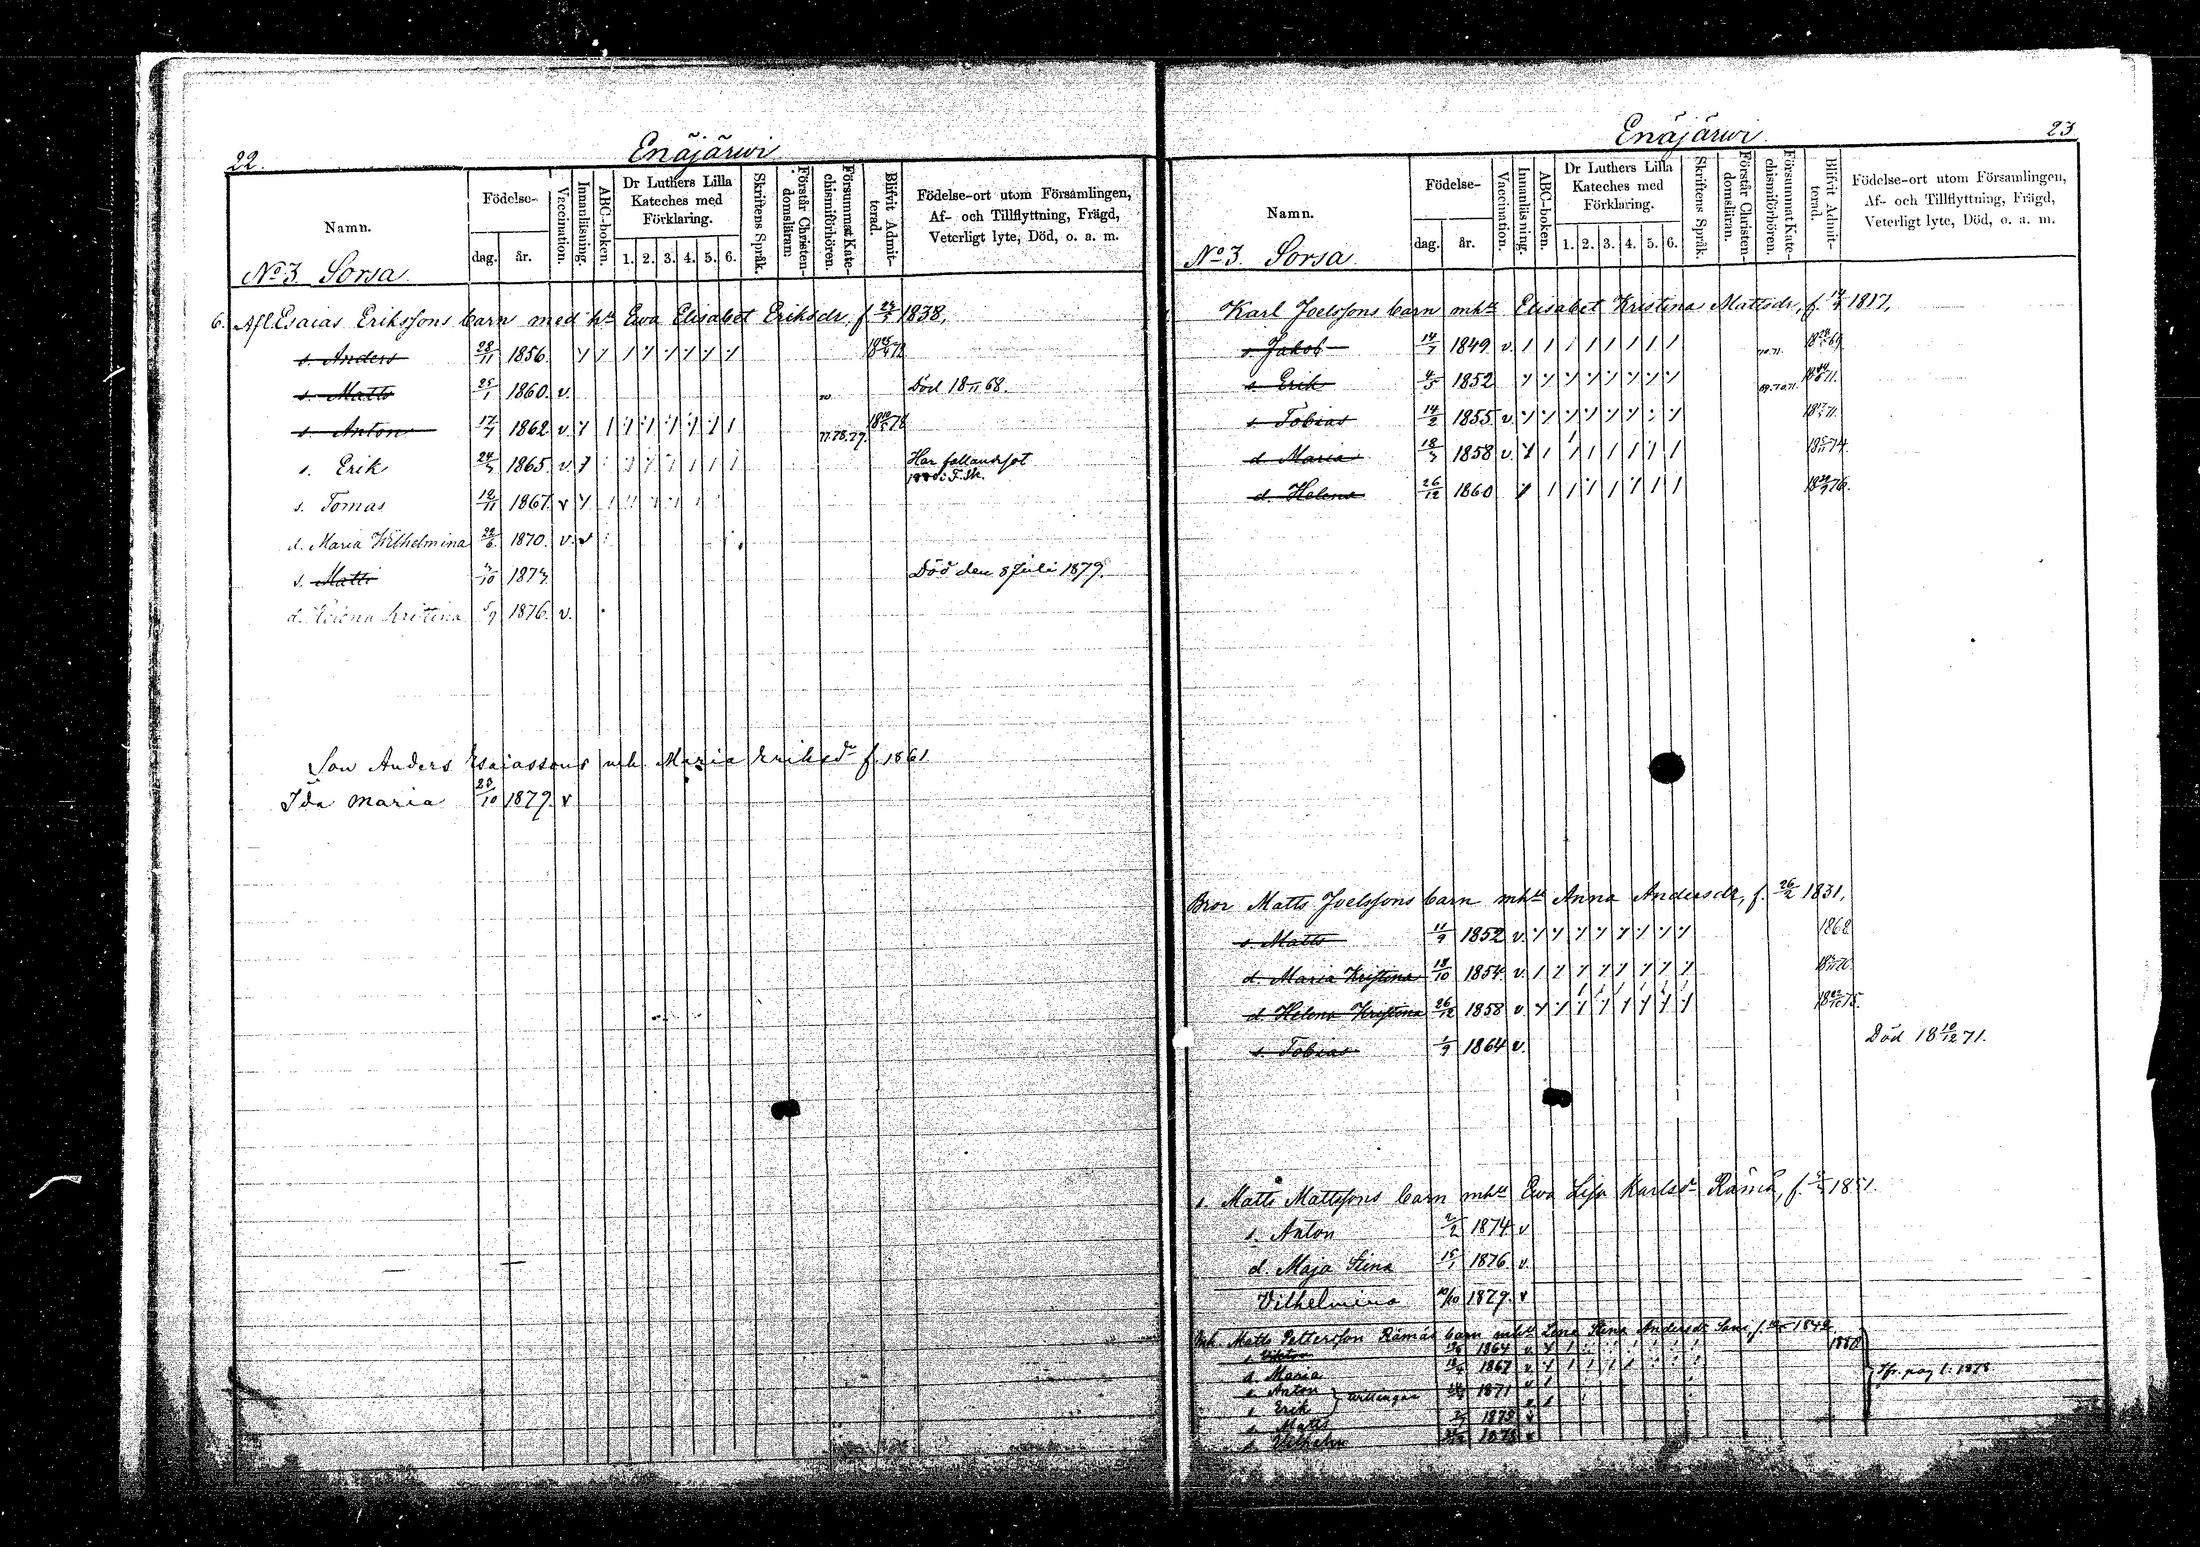 22.
Enäjärwi
Namn.
Födelse-
dag.
år.
Vaccination.
Innanläsning.
ABC-boken.
Dr Luthers Lilla
Kateches med
Förklaring.
1. 2. 3. 4. 5. 6.
Skriftens Språk.
Förstår Christen-
domsläran:
Försummat Kate-
chismiförhören.
Blifvit Admit-
terad.
Födelse-ort utom Församlingen,
Af- och Tillflyttning, Frägd,
Veterligt lyte, Död, o. a. m.
No 3. Sorsa
6. Afl. Esaias Erikssons barn med h. Ewa Elisabet Eriksdr, f. 1838,
s. Anders 28/11 1856.
s. Matts 25/1 1860. v. Död 18 11 68.
s. Anton 17/7 1862 v. 77.78.79.
s. Erik 1865. v. Har fallandsot
1880 i F. Sk.
s. Tomas 12/11 1867. v
d. Maria Wilhelmina 22/6 1870. v. v
s. Matti 1873 Död den 8 Juli 1879.
d. Helena Kristina 5/9 1876. v.
Son Anders Esaiassons mh. Maria Eriksdr f. 1861
Ida Maria 23/10 1879. v
Enäjärwi
23
Namn.
Födelse-
dag.
år.
Vaccination.
Innanläsning.
ABC-boken.
Dr Luthers Lilla
Kateches med
Förklaring.
1. 2. 3. 4. 5. 6.
Skriftens Språk.
Förstår Christen-
domsläran.
Försummat Kate-
chismiförhören.
Blifvit Admit-
terad.
Födelse-ort utom Församlingen,
Af- och Tillflyttning, Frägd,
Veterligt lyte, Död, o. a. m.
No 3. Sorsa
Karl Joelssons barn mhu Elisabet Kristina Mattsdr, f. 1817,
s. Jakob 14/7 1849 v. 70.71.
s. Erik 4/5 1852 69.70.71.
s. Tobias 14/2 1855 v.
d. Maria 18/3 1858 v.
d. Helena 26/12 1860
Bror Matts Joelssons barn mhu Anna Andersdr, f. 26/2 1831,
s. Matts 11/9 1852 v. 1868
d. Maria Kristina 18/10 1854. v.
d. Helena Kristina 26/12 1858 v
s. Tobias 1/9 1864 v. Död 18 10/12 71.
s. Matts Mattssons barn mhu Ewa Lisa Karlsdr Rämä, f. 1851.
s. Anton 2/2 1874 v
d. Maja Stina 15/1 1876. v.
Vilhelmina 10/10 1879. v
Inh. Matts Pettersson Rämäs barn mhu Lena Stina Andersdr f. 1842
s. Viktor 1864 v. 1880
d. Maria 1867 v.
s. Anton 1871 v
s. Erik
s. Matts 1875 v
s. Vilhelm 1878 v